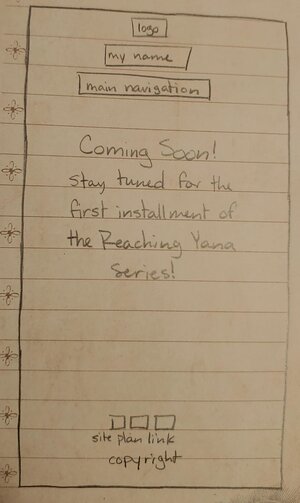 logo
my name
main navigation
Coming Soon!
stay tuned for the
first installment of
the Reaching Yana
Series!
site plan link
copyright